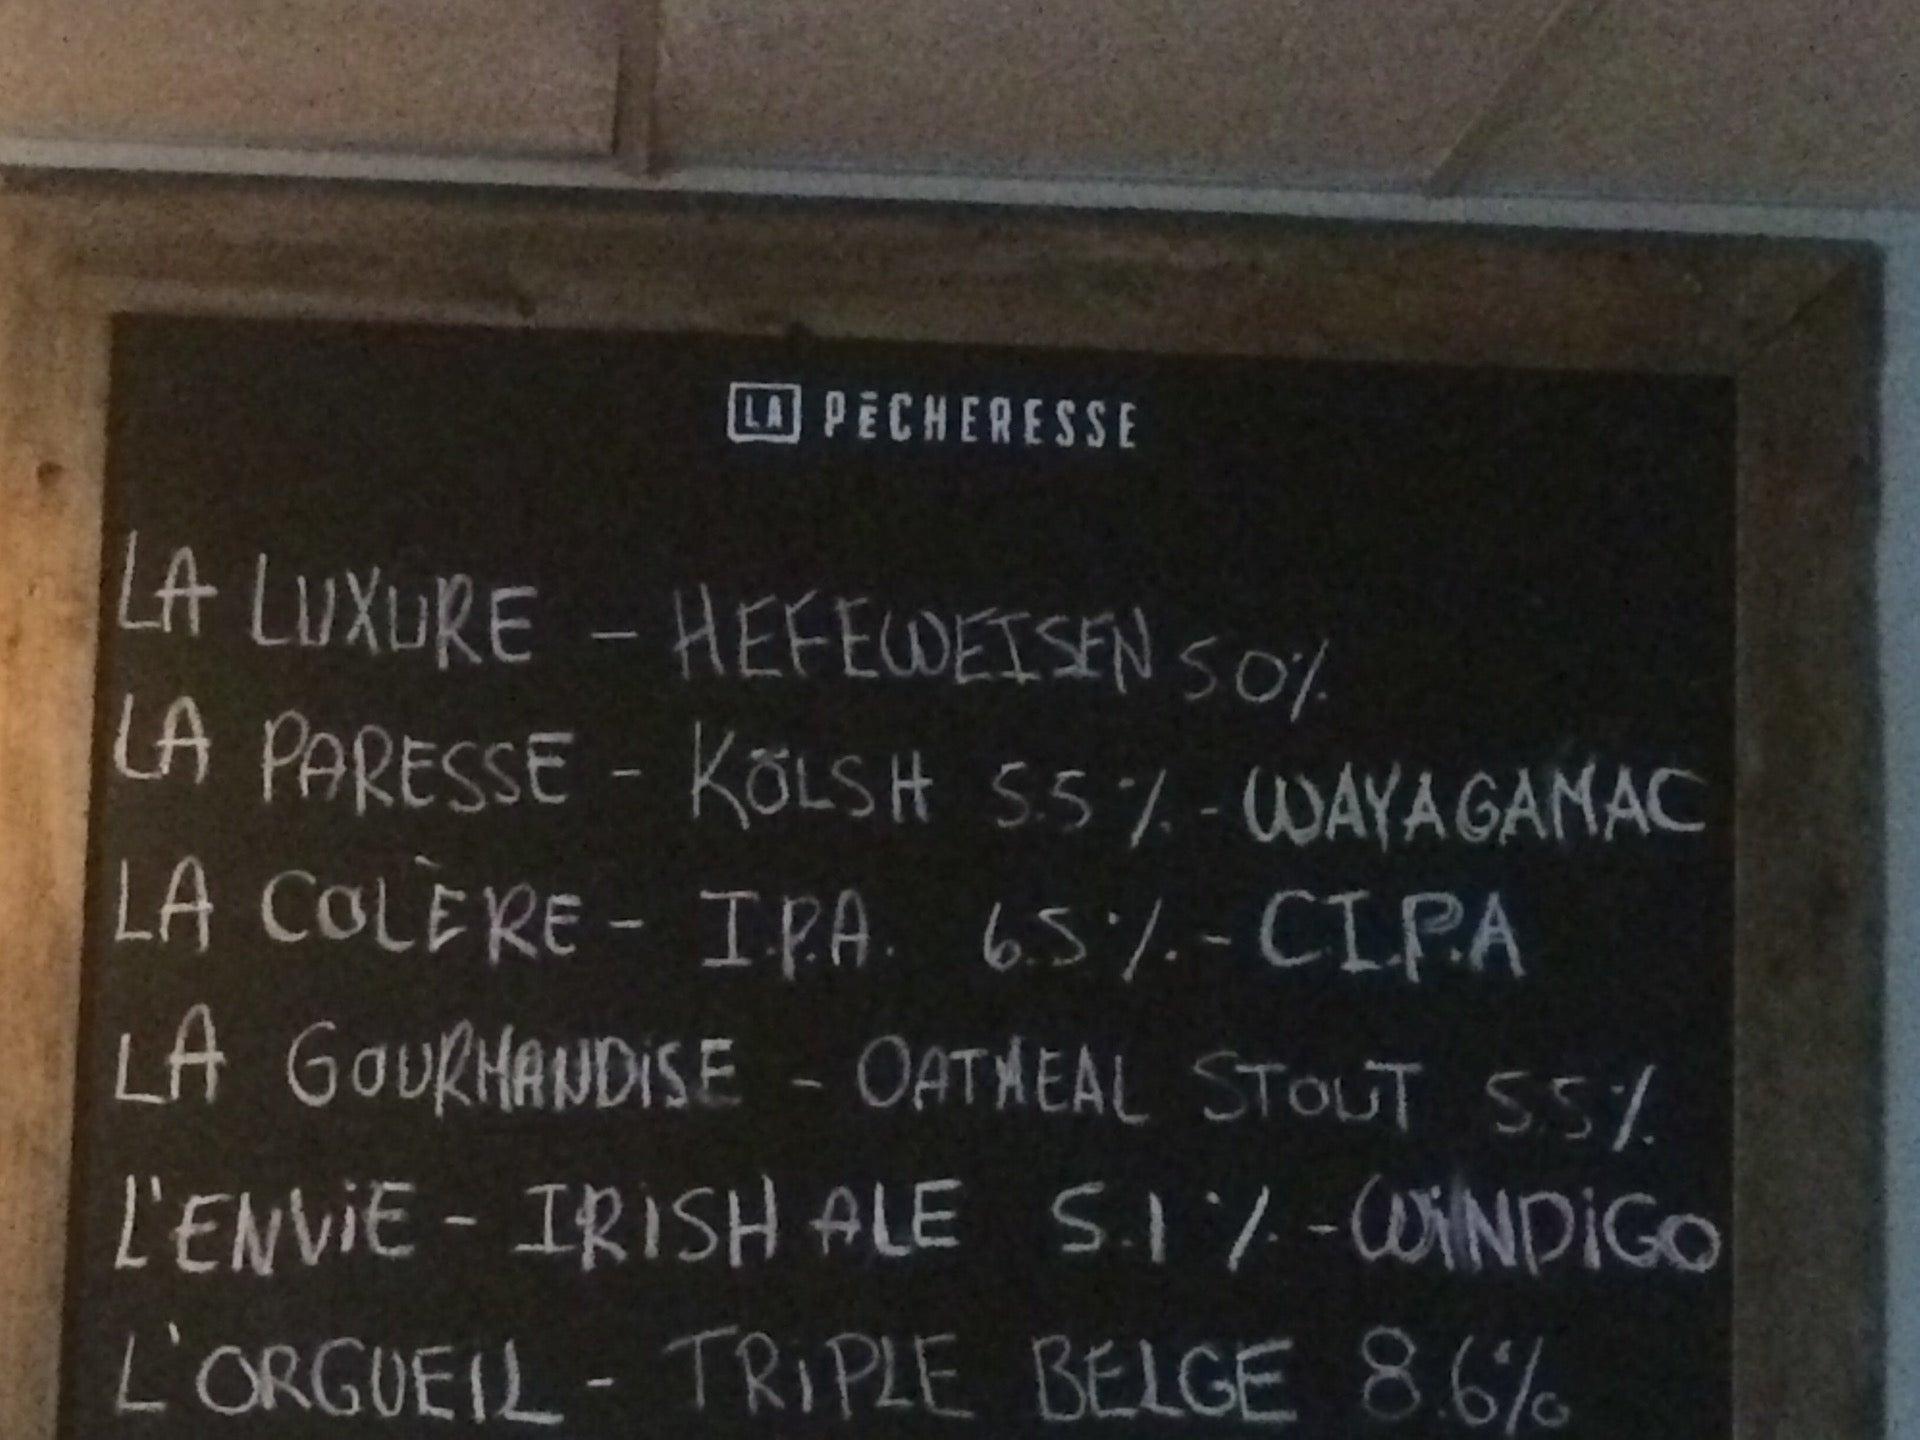 LA PÊCHERESSE
LA LUXURE - HEFEWEISEN 5.0%
LA PARESSE - KÖLSH 5.5% - WAYAGAMAC
LA COLÈRE - I.P.A. 6.5% - C.I.P.A
LA GOURMANDISE - OATMEAL STOUT 5.5%
L'ENVIE - IRISH ALE 5.1% - WINDIGO
L'ORGUEIL - TRIPLE BELGE 8.6%